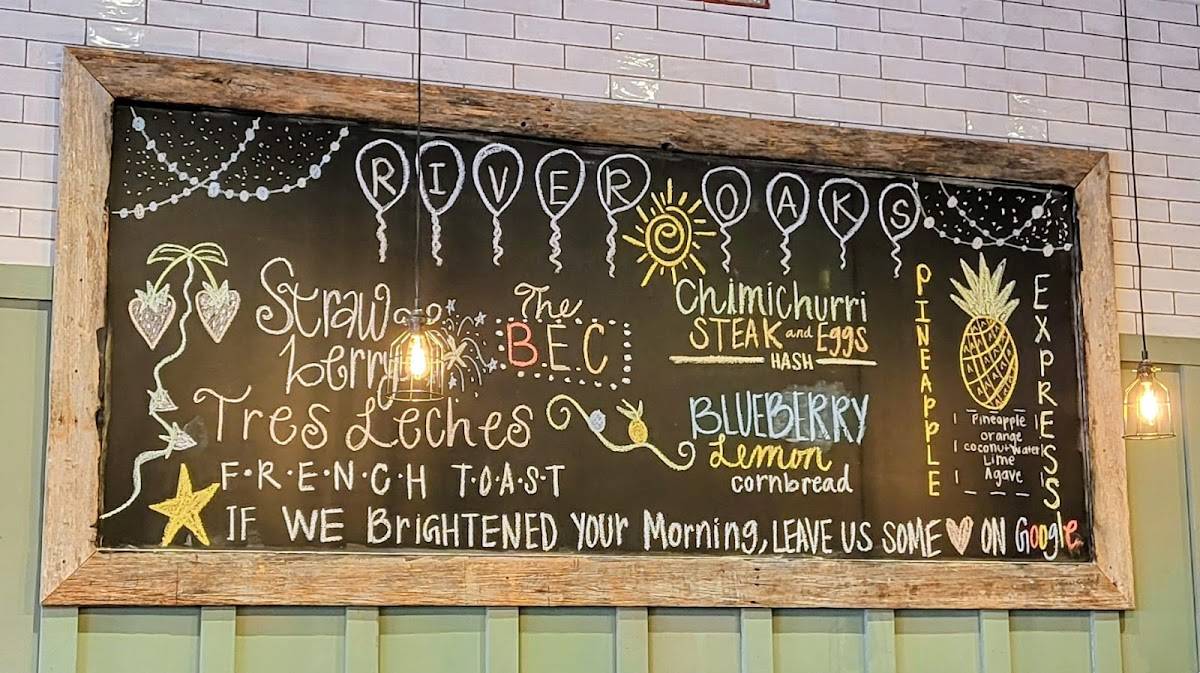 RIVER OAKS
Strawberry
Tres Leches
F·R·E·N·C·H T·O·A·S·T
The
B.E.C
Chimichurri
STEAK and EGGS
HASH
BLUEBIRRY
Lemon
cornbread
PINEAPPLE
EXPRESS
Pineapple
orange
coconut water
Lime
Agave
IF WE BrigHTENED YOUr Morning, LEAVE US SOME ON Google